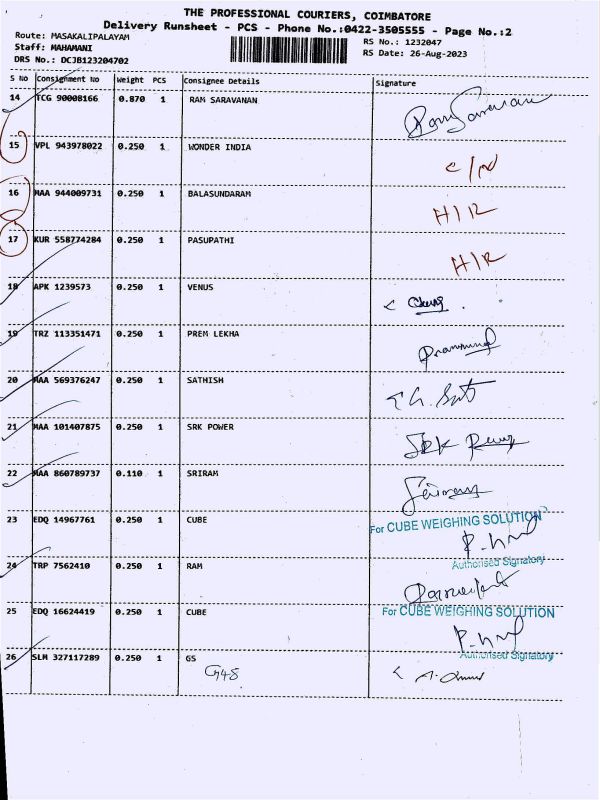 THE PROFESSIONAL COURIERS, COIMBATORE
Delivery Runsheet - PCS - Phone No.:0422-3505555 - Page No.:2
Route: MASAKALIPALAYAM
Staff: MAHAMANI
DRS No.: DCJB123204702
RS No.: 1232047
RS Date: 26-Aug-2023
S No Consignment No Weight PCS Consignee Details Signature
14 TCG 90008166 0.870 1 RAM SARAVANAN
15 VPL 943978022 0.250 1 WONDER INDIA
16 MAA 944009731 0.250 1 BALASUNDARAM H/R
17 KUR 558774284 0.250 1 PASUPATHI H/R
18 APK 1239573 0.250 1 VENUS
19 TRZ 113351471 0.250 1 PREM LEKHA
20 MAA 569376247 0.250 1 SATHISH
21 MAA 101407875 0.250 1 SRK POWER
22 MAA 860789737 0.110 1 SRIRAM
23 EDQ 14967761 0.250 1 CUBE
For CUBE WEIGHING SOLUTION
Authorised Signatory
24 TRP 7562410 0.250 1 RAM
25 EDQ 16624419 0.250 1 CUBE
For CUBE WEIGHING SOLUTION
Authorised Signatory
26 SLM 327117289 0.250 1 GS